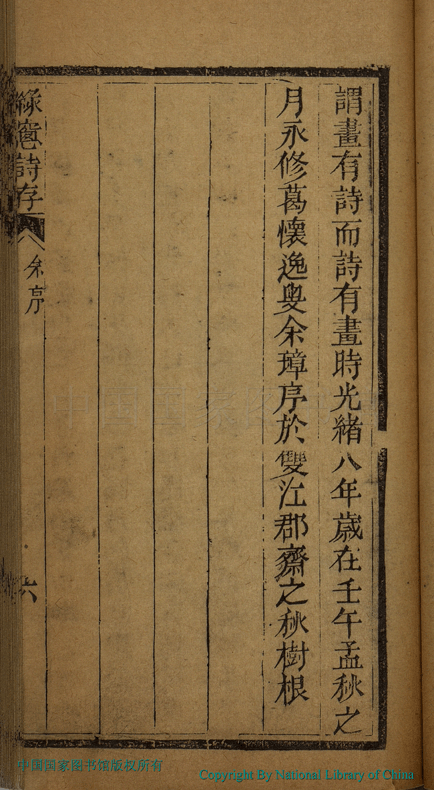 謂畫有詩而詩有畫時光緒八年歲在壬午孟秋之
月永修葛懷逸叟余璋序於雙江郡齋之秋樹根
詩存一
余序
六
中国国家图书馆版权所有
Copyright By National Library of China